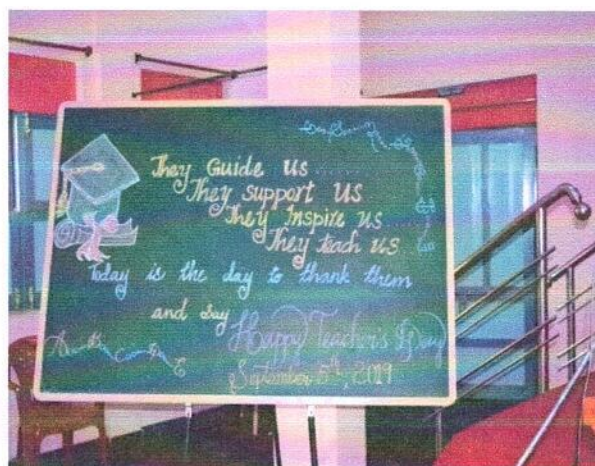 They Guide us
They support us
They Inspire us
They teach us
Today is the day to thank them
and say
Happy Teacher's Day
September 5th, 2019
A B C D E